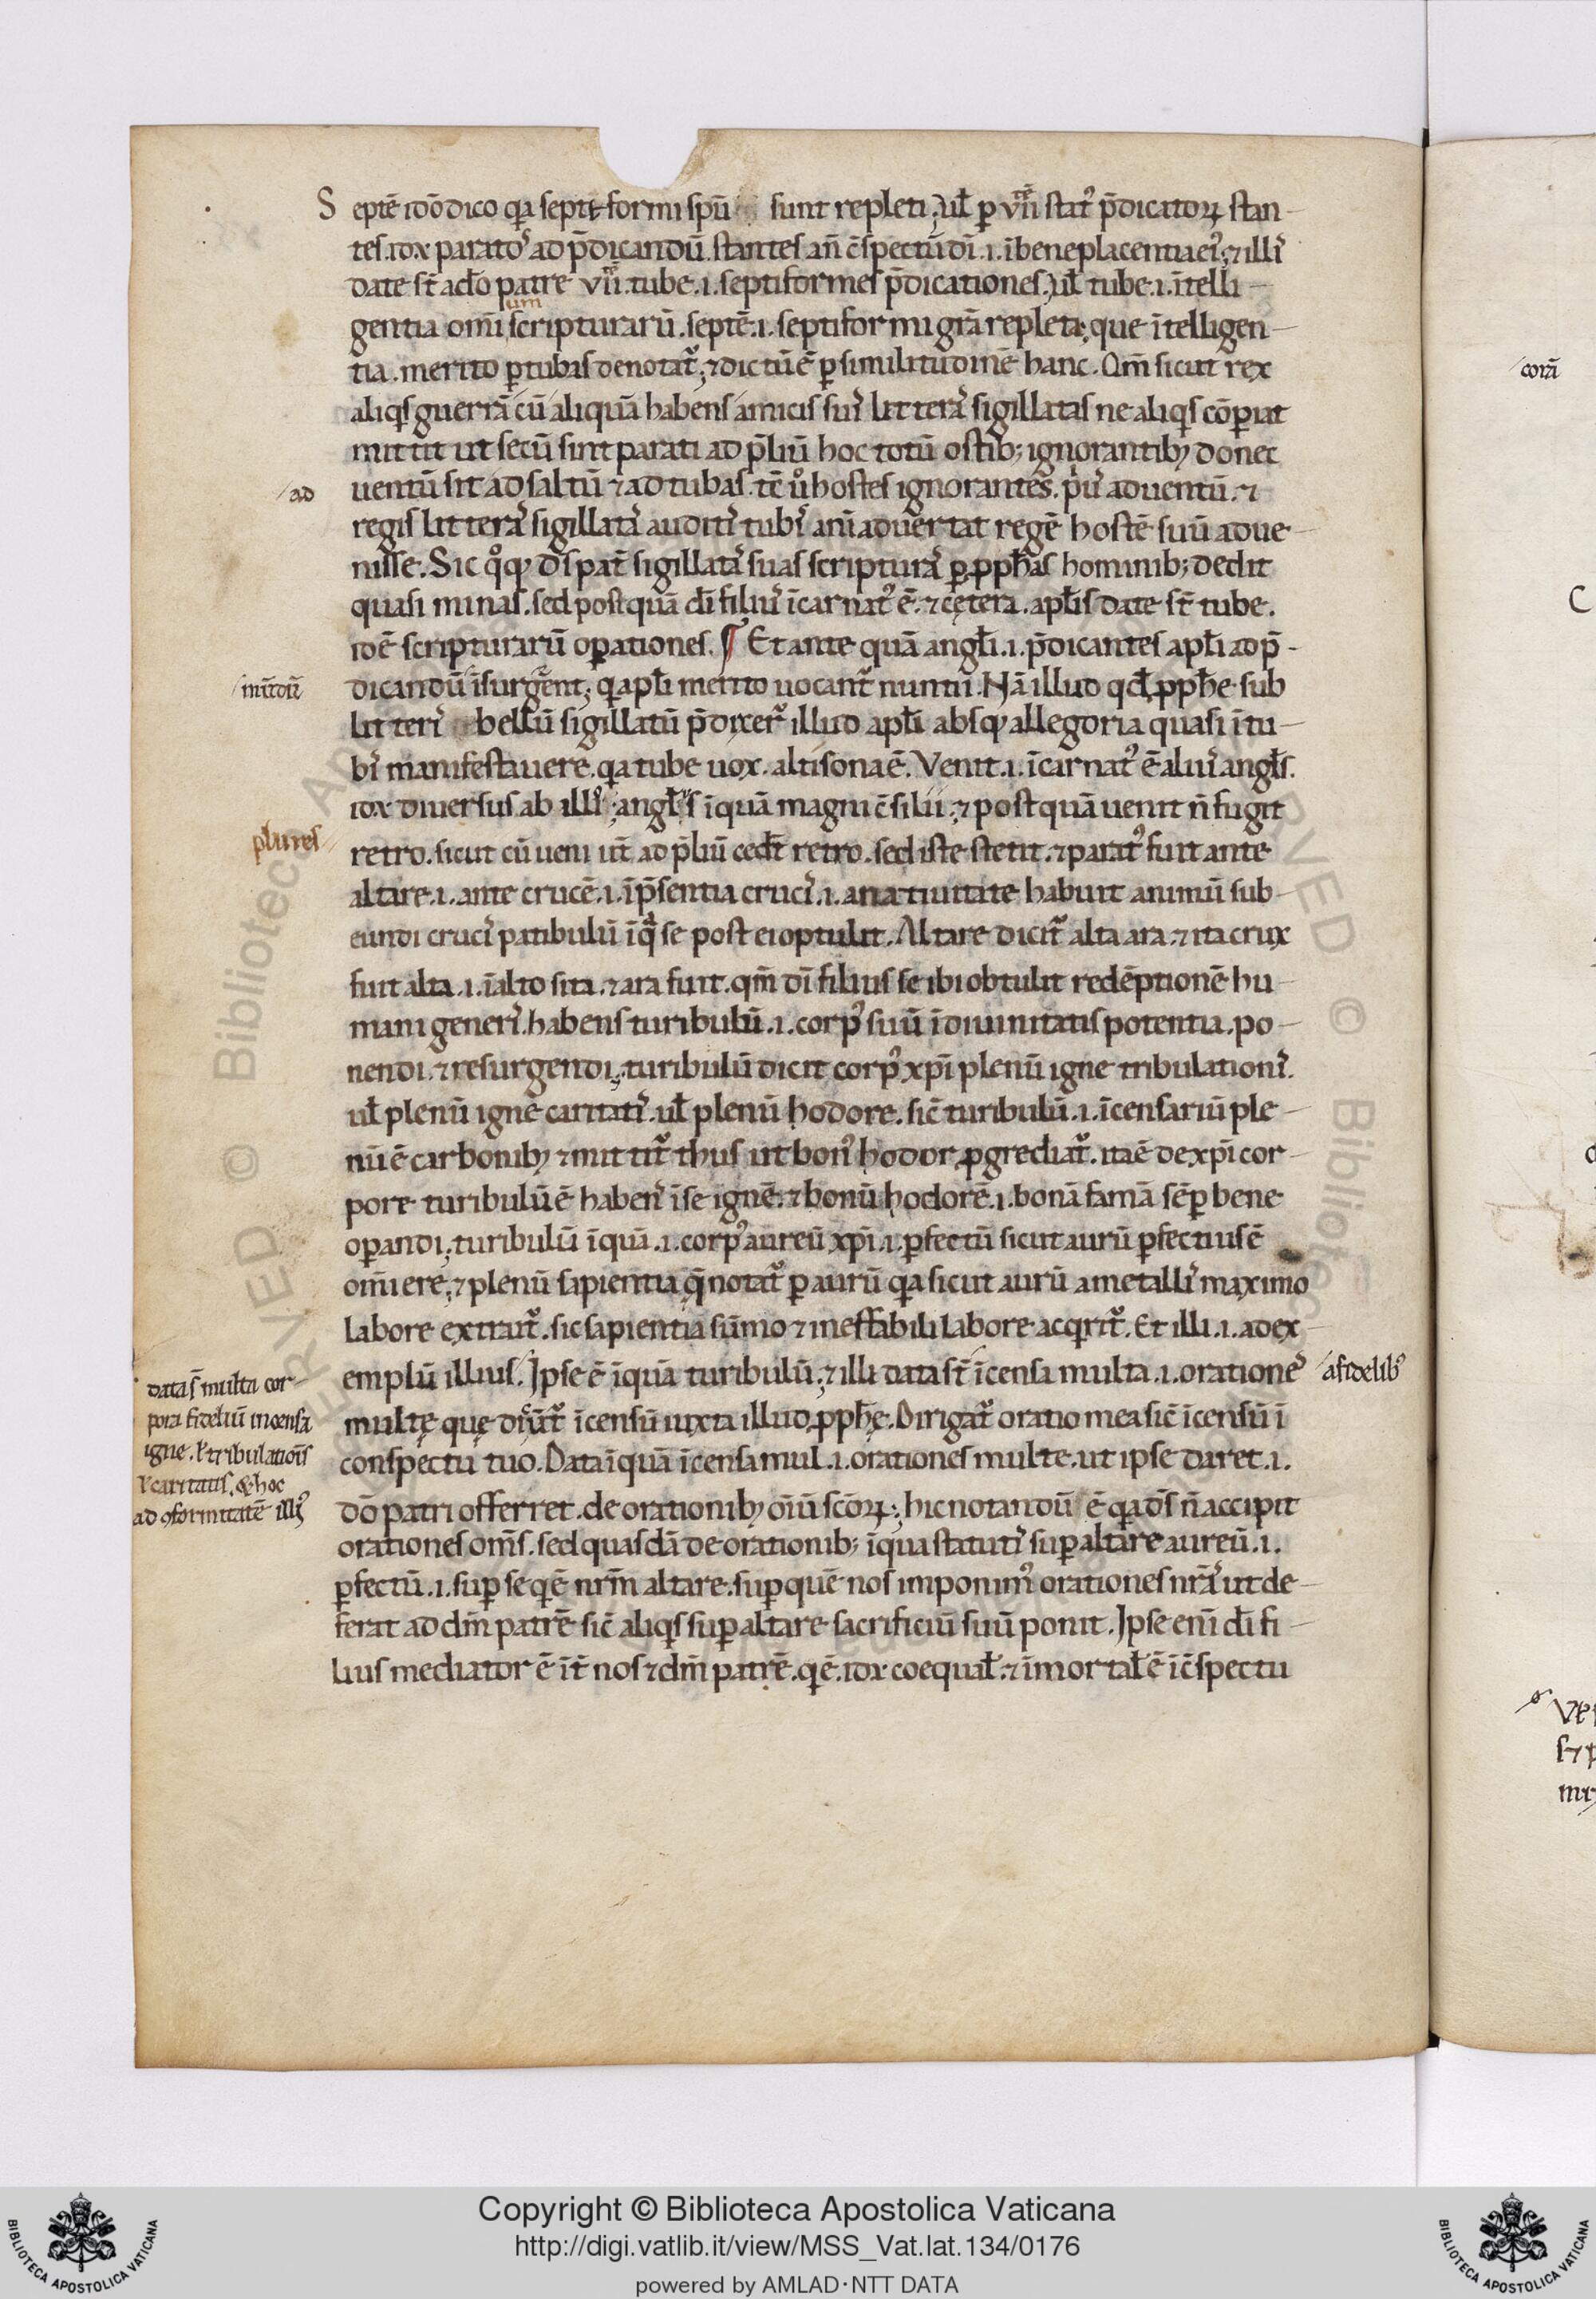 Septē idō dico q̄a septē formi spū sunt repleti; ul̄ p̱ vii stat᷒ p̄dicatoꝝ stan-
tes. idx̄ parato᷒ ad p̄dicandū. stantes an̄ c̄spectū dī .i. ībeneplacentia ei᷒; ⁊ illi᷒
date st̄ a dō patre vii. tube .i. septiformes p̄dicationes. ul̄ tube .i. ītelli-
gentia om̄i scripturarū. septē .i. septiformi grā repleta; que ītelligen-
um
tia. merito p̱ tubas denotat᷑; ⁊ dictū ē p̱ similitudinē hanc. Qm̄ sicut rex
aliqs guerrā cū aliquā habens amicis sui᷒ littera᷒ sigillatas ne aliqs cōp̱iat
mittit ut secū sint parati ad p̄liū hoc totū ostib; ignorantib; donec
uentū sit ad saltū ⁊ ad tubas. tē ů hostes ignorantes. p᷒u᷒ aduentū. ⁊
ad
regis littera᷒ sigillata᷒ audit᷒ tub᷒ anīaduertat regē hostē suū adue-
nisse. Sic qͦq; ds̄ pat̄ sigillata᷒ suas scriptura᷒ p̱ pph̄as hominib; dedit
quasi minas. sed postquā dī filiu᷒ īcarnat᷒ ē. ⁊ cętera. apl̄is date st̄ tube.
idē scripturarū op̱ationes. ¶ Et ante quā angl̄i .i. p̄dicantes apl̄i ad p̄-
dicandū īsurgent; q̄ apl̄i merito uocant᷑ nuntii. Nā illud qd̄ pph̄e sub
litteri᷒ bellū sigillatū p̄dixer᷒ illud apl̄i absq; allegoria quasi ī tu-
bi᷒ manifestauere. q̄a tube uox. altisona ē. Venit .i. īcarnat᷒ ē aliu᷒ angl̄s.
idx̄ diuersus ab illi᷒; angl̄s īquā magni c̄silii; ⁊ postquā uenit n̄ fugit
plures
retro. sicut cū ueni ut̄ ad p̄liū ced̄t retro. sed iste stetit. ⁊ parat᷒ fuit ante
altare .i. ante crucē .i. īp̄sentia cruci᷒ .i. a natiuitate habuit animū sub-
eundi cruci᷒ patibulū īq̄ se post ei optulit. Altare dicit᷑ alta ara. ⁊ ita crux
fuit alta .i. ī alto sita. ⁊ ara fuit. qm̄ dī filius se ibi obtulit redēptionē hu-
mani generi᷒. habens turibulū .i. corp᷒ suū ī diuinitatis potentia. po-
nendi. ⁊ resurgendi. turibulū dicit corp᷒ xp̄i plenū igne tribulationi᷒.
ul̄ plenū igne caritati᷒. ul̄ plenū hodore. sic̄ turibulū .i. īcensariū ple-
nū ē carbonib; ⁊ mittit᷑ thus ut bon᷒ hodor pgrediat᷑. ita ē de xp̄i cor-
pore turibulū ē haben᷒ ī se ignē. ⁊ bonū hodorē .i. bonā famā sēp̱ bene
op̱andi; turibulū īquā .i. corp᷒ aureū xp̄i .i. p̱fectū sicut aurū p̱fectius ē
om̄i ere; ⁊ plenū sapientia q̄ notat᷑ p̱ aurū q̄a sicut aurū a metalli᷒ maximo
labore extrait᷑. sic sapientia sūmo ⁊ ineffabili labore acqrit᷑. Et illi .i. ad ex-
emplū illius. Ipse ē īquā turibulū; ⁊ illi data st̄ īcensa multa .i. oratione᷒
afidelib᷒
data s̄ multa cor-
pora fideliū incensa
igne. l̄ tribulatiōis
l̄ caritatis. & hoc
ad ꝯformitatē illi᷒
multę quę diūt᷑ īcensū iuxta illud pph̄ę. Dirigat᷑ oratio mea sic̄ īcensū ī
conspectu tuo. Data īquā īcensa mul .i. orationes multe. ut ipse daret .i.
dō patri offerret. de orationib; oīū scōꝝ; hic notandū ē q̄a ds̄ n̄ accipit
orationes om̄s. sed quasdā de orationib; īqua statuti᷒ sup̱ altare aureū .i.
p̱fectū .i. sup̱ se q̄ ē nr̄m altare. sup̱ quē nos imponim᷒ orationes nr̄a᷒ ut de-
ferat ad dm̄ patrē sic̄ aliqs sup̱ altare sacrificiū suū ponit. Ipse eni̅ dī fi-
lius mediator ē īt̄ nos ⁊ dm̄ patrē. q̄ ē. idx̄ coequal̄. ⁊ īmortal̄ ē īc̄spectu
corā
Copyright © Biblioteca Apostolica Vaticana
http://digi.vatlib.it/view/MSS_Vat.lat.134/0176
powered by AMLAD·NTT DATA
BIBLIOTECA APOSTOLICA VATICANA
BIBLIOTECA APOSTOLICA VATICANA